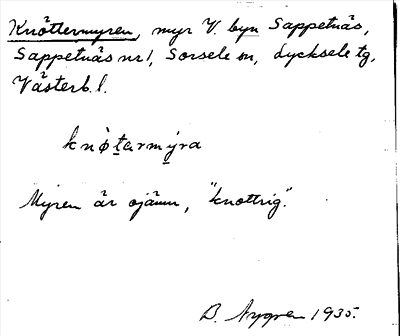 Knöttermyren, myr V. byn Sappetnäs,
Sappetnäs nr 1, Sorsele sn, Lycksele tg,
Västerb. l.
knø̀tarmy̬ra
Myren är ojämn, "knottrig".
B. Nygren 1935.